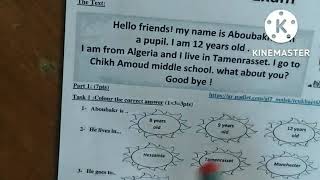 The Text:
Hello friends! my name is Aboubakr
a pupil. I am 12 years old .
I am from Algeria and I live in Tamenrasset. I go to
Chikh Amoud middle school. what about you?
Good bye !
KINEMASTER
Part 1: (7pts)
Task 1 :Colour the correct answer (1×3=3pts)
1- Aboubakr is ..
8 years old
9 years old
12 years old
2- He lives in...
Tamenrasset
Manchester
3- He goes to..